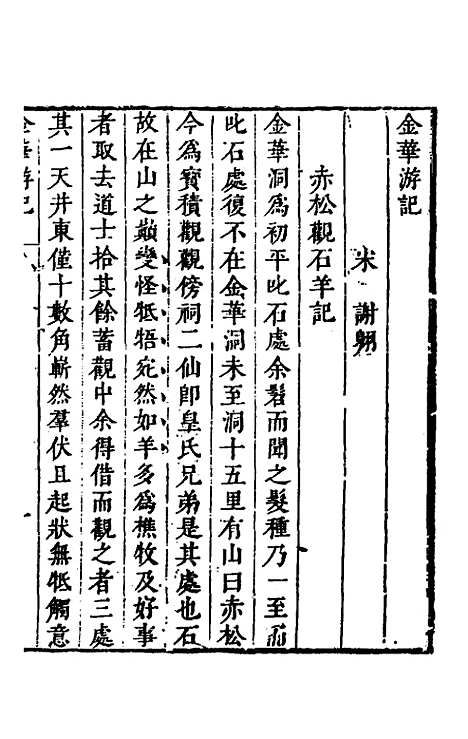 金華游記
宋　謝翱
赤松觀石羊記
金華洞爲初平叱石處余髫而聞之髮種乃一至而
叱石處復不在金華洞未至洞十五里有山曰赤松
今爲寳積觀觀傍祠二仙卽皇氏兄弟是其處也石
故在山之巔變怪牴牾宛然如羊多爲樵牧及好事
者取去道士拾其餘蓄觀中余得借而觀之者三處
其一天井東僅十數角嶄然羣伏且起狀無牴觸意
金華游記